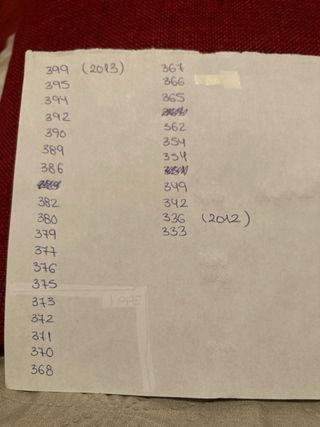 399 (2013)
395
394
392
390
389
386
382
380
379
377
376
375
373
372
371
370
368
367
366
365
362
354
354
349
342
336 (2012)
333